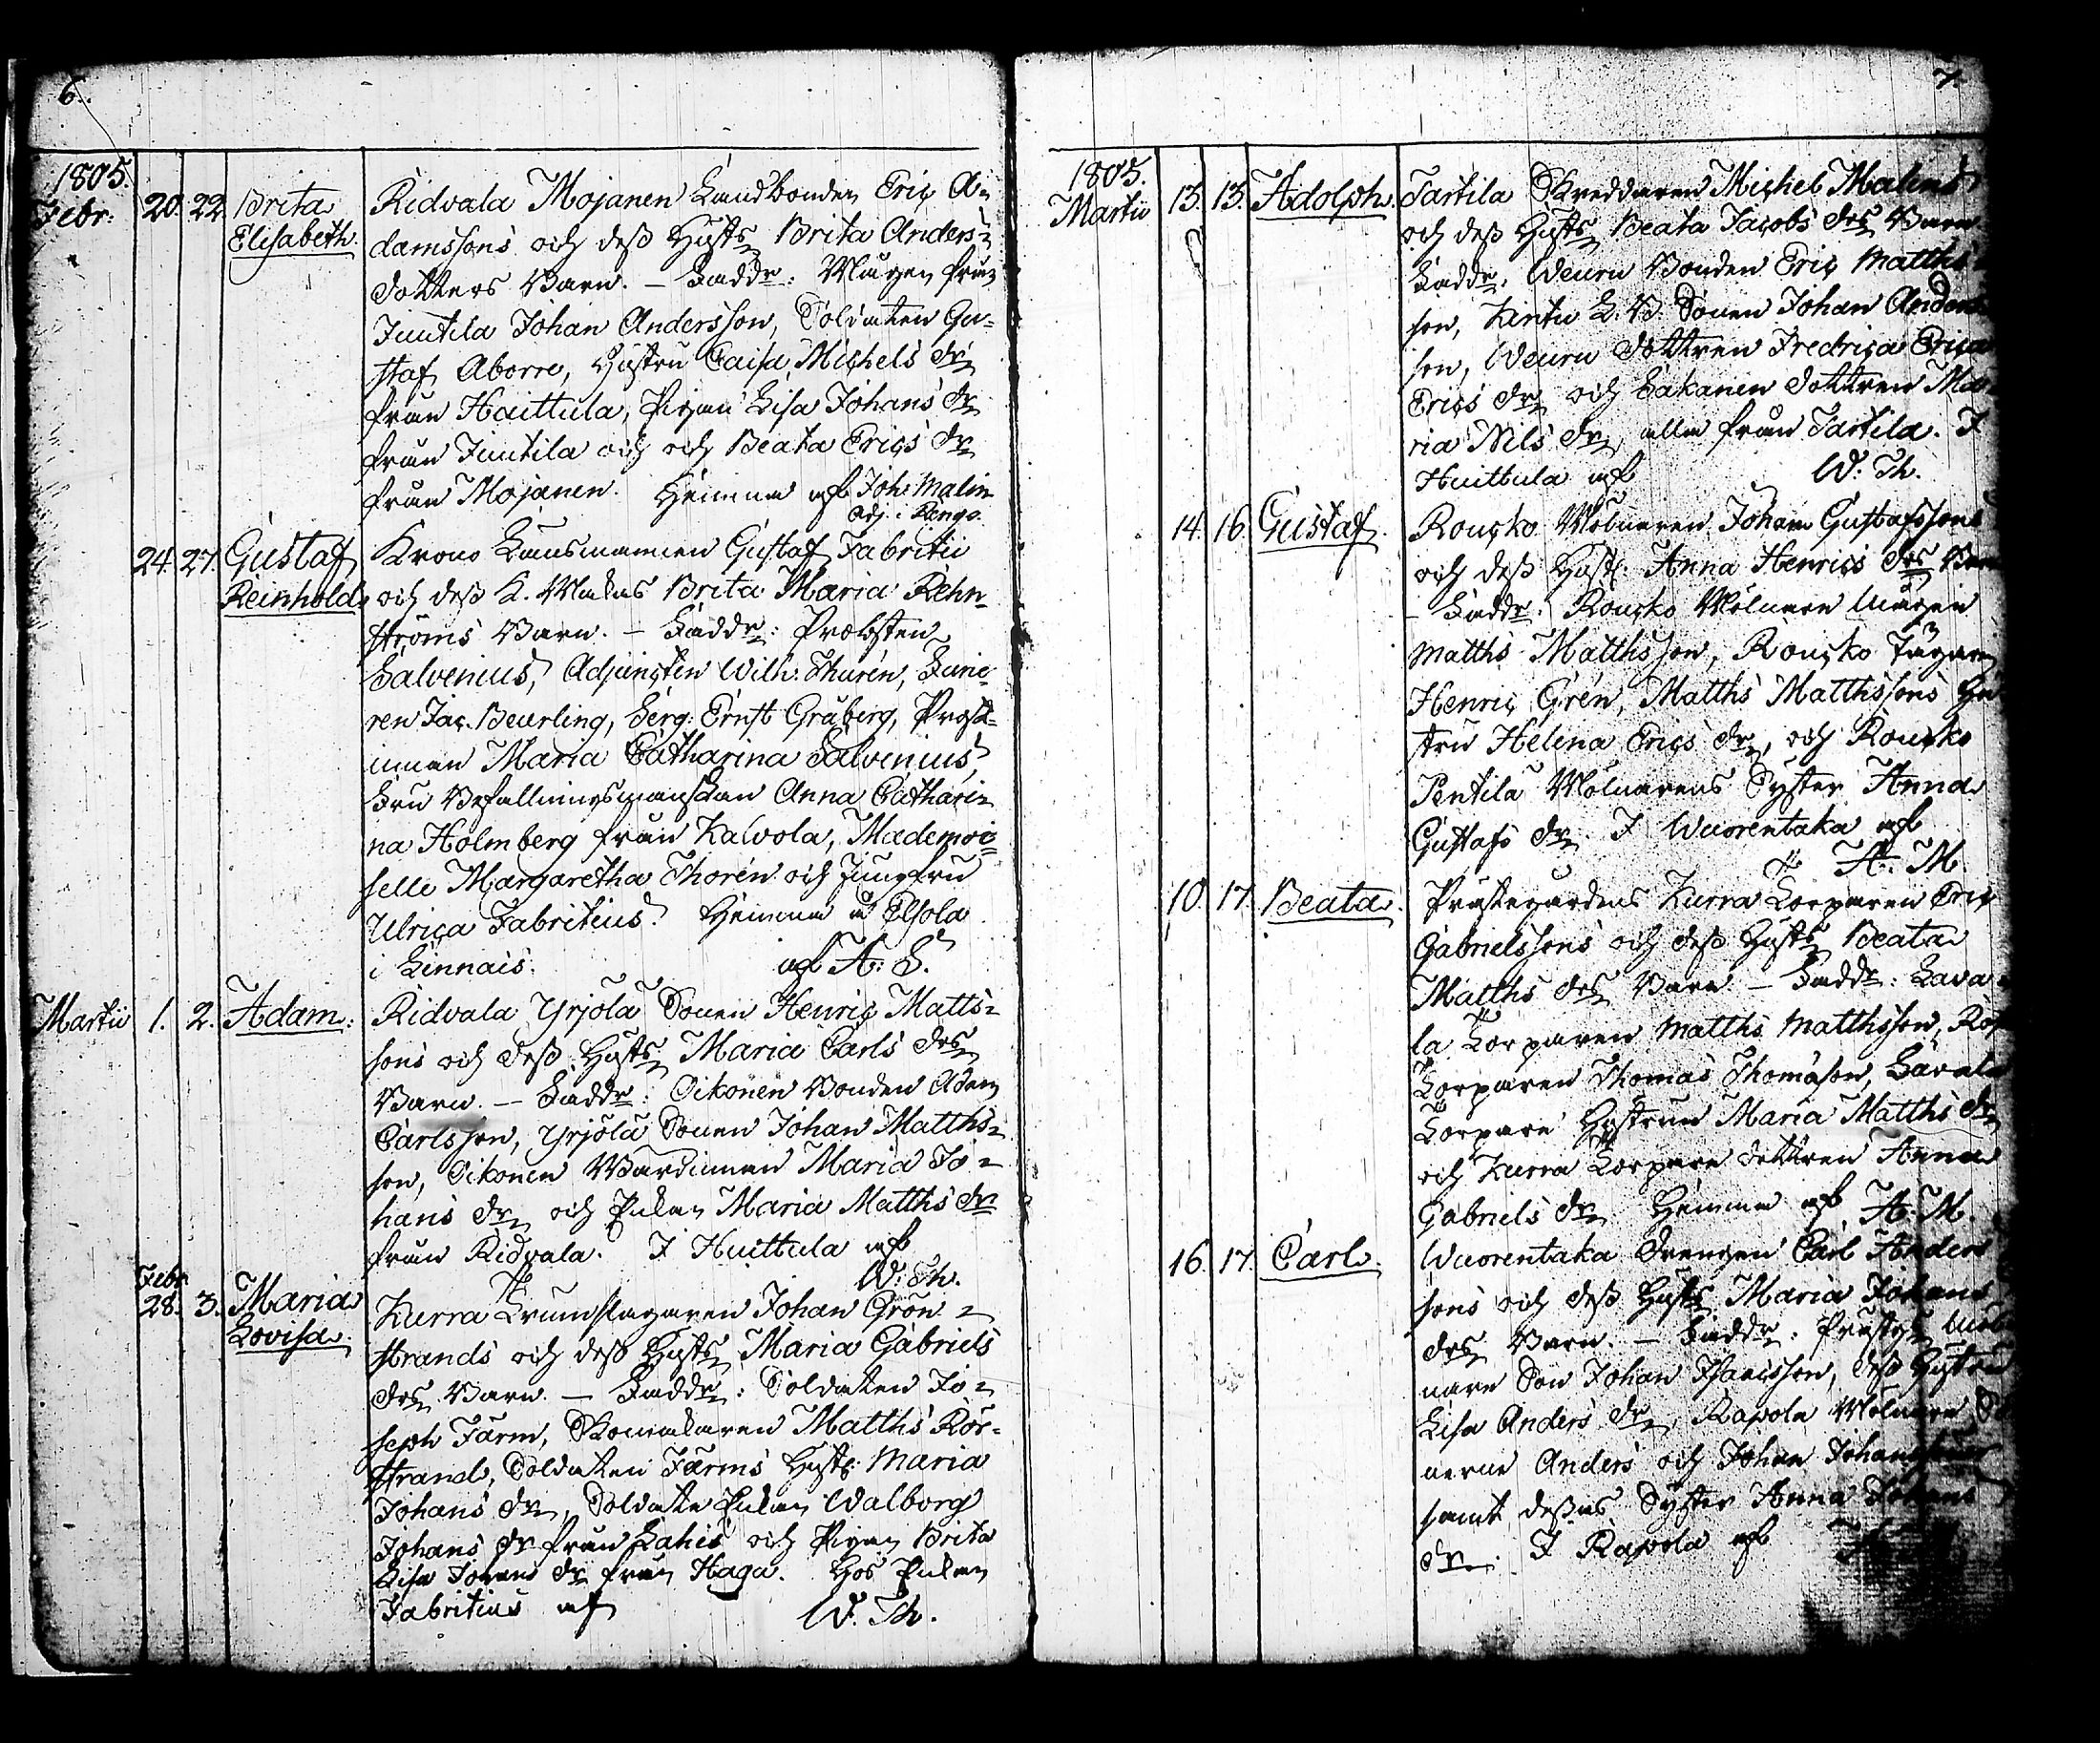 6.
1805.
Febr: 20. 22. Brita Elisabeth.
Ridvala Mojanen Landbonden Eric A=
damssons och dess Hustr Brita Anders=
dotters Barn. – Faddr: Mågen från
Juutila Johan Andersson, Soldaten Gu=
staf Aborre, Hustru Caisa Michels dr
från Haittula, Pigan Lisa Johans dr
från Juutila och och Beata Erics dr
från Mojanen. Hemma af Joh: Malin
Adj. i Rengo.
24. 27. Gustaf Reinhold.
Krono Länsmannen Gustaf Fabritii
och dess K. Makas Brita Maria Rehn=
ströms Barn. – Faddr: Probsten
Salvenius, Adjuncten Wilh: Thurén,
ren Jac. Beurling, Serg: Ernst Gråberg, Prost=
innan Maria Catharina Salvenius,
Fru Befallningsmanskan Anna Cathari=
na Holmberg från Kalvola, Mademoi=
selle Margaretha Thorén och Jungfru
Ulrica Fabritius. Hemma å Elsola
i Linnais. af A: S.
Martii 1. 2. Adam.
Ridvala Yrjölä Sonen Henric Matts=
sons och dess Hustr Maria Carls drs
Barn. – Faddr: Oikonen Bonden Adam
Carlsson, Yrjölä Sonen Johan Matths=
son, Oikonen Wärdinnan Maria Jo=
hans dr och Pigan Maria Matths dr
från Ridvala. I Huittula af
W: Th.
Febr 28. 3. Maria Lovisa.
Kurra Trumslagaren Johan Grön=
strands och dess Hustr Maria Gabriels
drs Barn. – Faddr: Soldaten Jo=
seph Färm, Skomakaren Matths Rör=
strand, Soldaten Färms Hustr: Maria
Johans dr, Soldate Enkan Walborg
Johans dr från Lahis och Pigan Brita
Lisa Johans dr från Haga. Hos Enkan
Fabritius af W. Th.
7.
1805.
Martii 13. 13. Adolph.
Tartila Skreddaren Michel Malens
och dess Hustr Beata Jacobs drs Barn
Faddr: Weuru Bonden Eric Matths=
son, Kintu L. B. Sonen Johan Anders
son, Weuru Dottren Fredrica Erica
Erics dr och Sakanen dottren Ma=
ria Nils dr, alla från Tartila. I
Huittula af W. Th.
14. 16. Gustaf.
Roucko Mölnaren Johan Gustafssons
och dess Hust: Anna Henrics drs Barn
– Faddr: Roucko Mölnare Mågen
Matths Matthsson, Roucko Jägaren
Henric Grén, Matths Matthssons Hu
stru Helena Erics dr, och Roucko
Pentila Mölnarens Syster Anna
Gustafs dr. I Wuorentaka af
A. M.
10. 17. Beata.
Prästegårdens Kurra Torparen Eric
Gabrielssons och dess Hustr Beata
Matths drs Barn – Faddr: Lava
la Torparen Matths Matthsson,
Torparen Thomas Thomasson, Lavala
Torpare Hustrun Maria Matths dr
och Kurra Torpare dottren Anna
Gabriels dr Hemma af A. M.
16. 17. Carl.
Wuorentaka Drengen Carl Anders
sons och dess Hustr Maria Johans
drs Barn. – Faddr:
nare Son Johan Isacsson, dess Hustru
Lisa Anders dr, Rapola Mölnare
nerne Anders och Johan Johans
samt dessas Syster Anna Johans
dr. I Rapola af